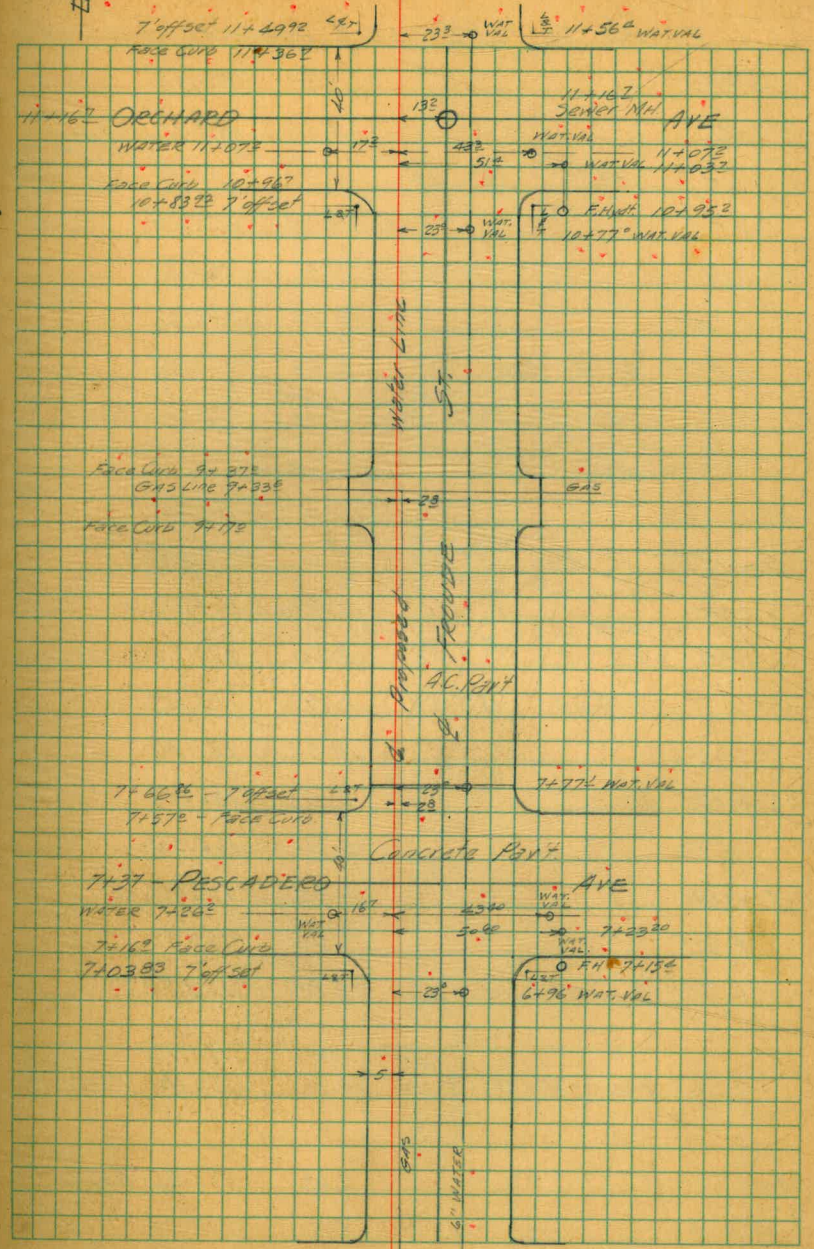 7' offset 11+49⁹² L&T
23³ WAT VAL
L&T 11+56⁴ WAT.VAL
Face Curb 11+36²
40'
11+16² ORCHARD
13²
11+16² Sewer MH
AVE
WATER 11+07³
17³
43³
WAT.VAL 11+07³
51⁴
WAT.VAL 11+03²
Face Curb 10+96²
10+83⁹² 7' offset
L&T
23⁰ WAT. VAL
L&T
F.Hydt 10+95²
10+77⁰ WAT.VAL
Water Line
ST.
Face Curb 9+37²
GAS Line 9+33⁶
GAS
28
Face Curb 9+17²
6" Proposed
FROUDE
A.C. Pav't
℄
7+66⁸⁶ - 7' offset L&T
23⁰
7+77² WAT.VAL
28
7+57⁰ - Face Curb
40'
Concrete Pav't
7+37 - PESCADERO
AVE
WATER 7+26²
WAT VAL
16⁷
43⁴⁰
WAT. VAL
50⁴⁰
7+23²⁰
WAT. VAL.
7+16⁹ Face Curb
7+03.83 7' offset
L&T
23⁰
L&T
FH 7+15⁴
6+96 WAT.VAL
5
GAS
6" WATER